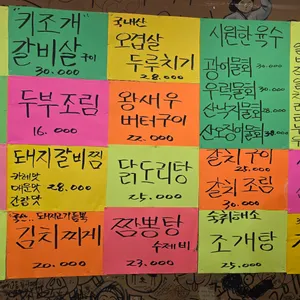 "키조개"
갈비살 구이
30.000
국내산
오겹살
두루치기
28.000
시원한 육수
광어물회 30.000
우럭물회 30.000
산낙지물회 38.000
산오징어물회 38.000
두부조림
16.000
왕새우
버터구이
22.000
돼지갈비찜
카레맛
매운맛 28.000
간장맛
닭도리탕
25.000
갈치구이
25.000
갈치조림
30.000
돼지고기듬뿍
김치찌개
20.000
짬뽕탕
수제비
23.000
숙취해소
조개탕
25.000